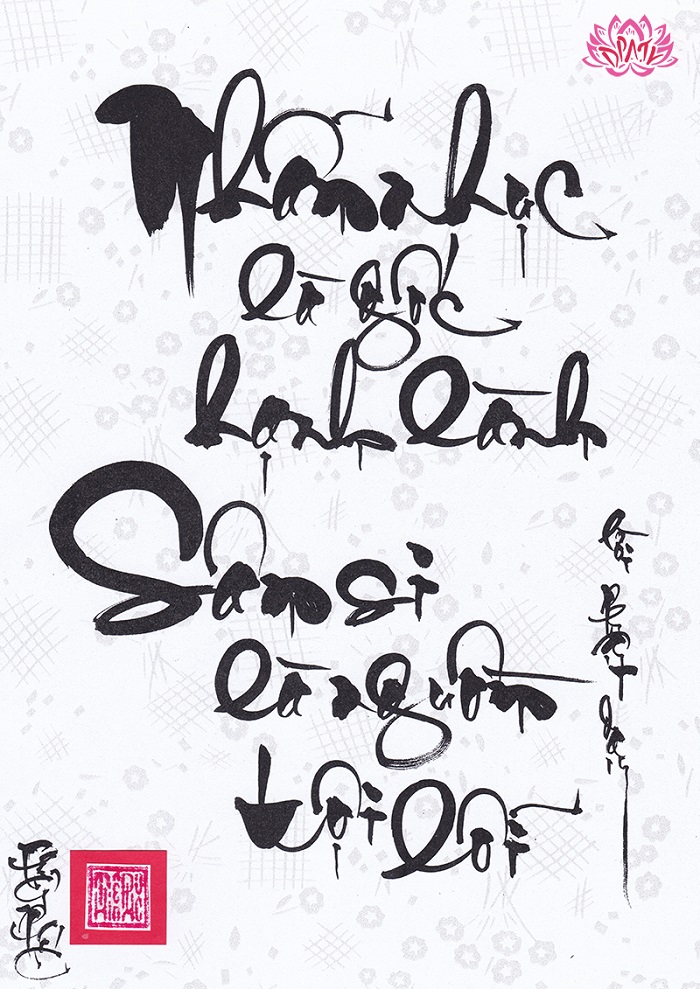 Nhẫn nhục
là gốc
hạnh lành
Sân si
là nguồn
tội lỗi